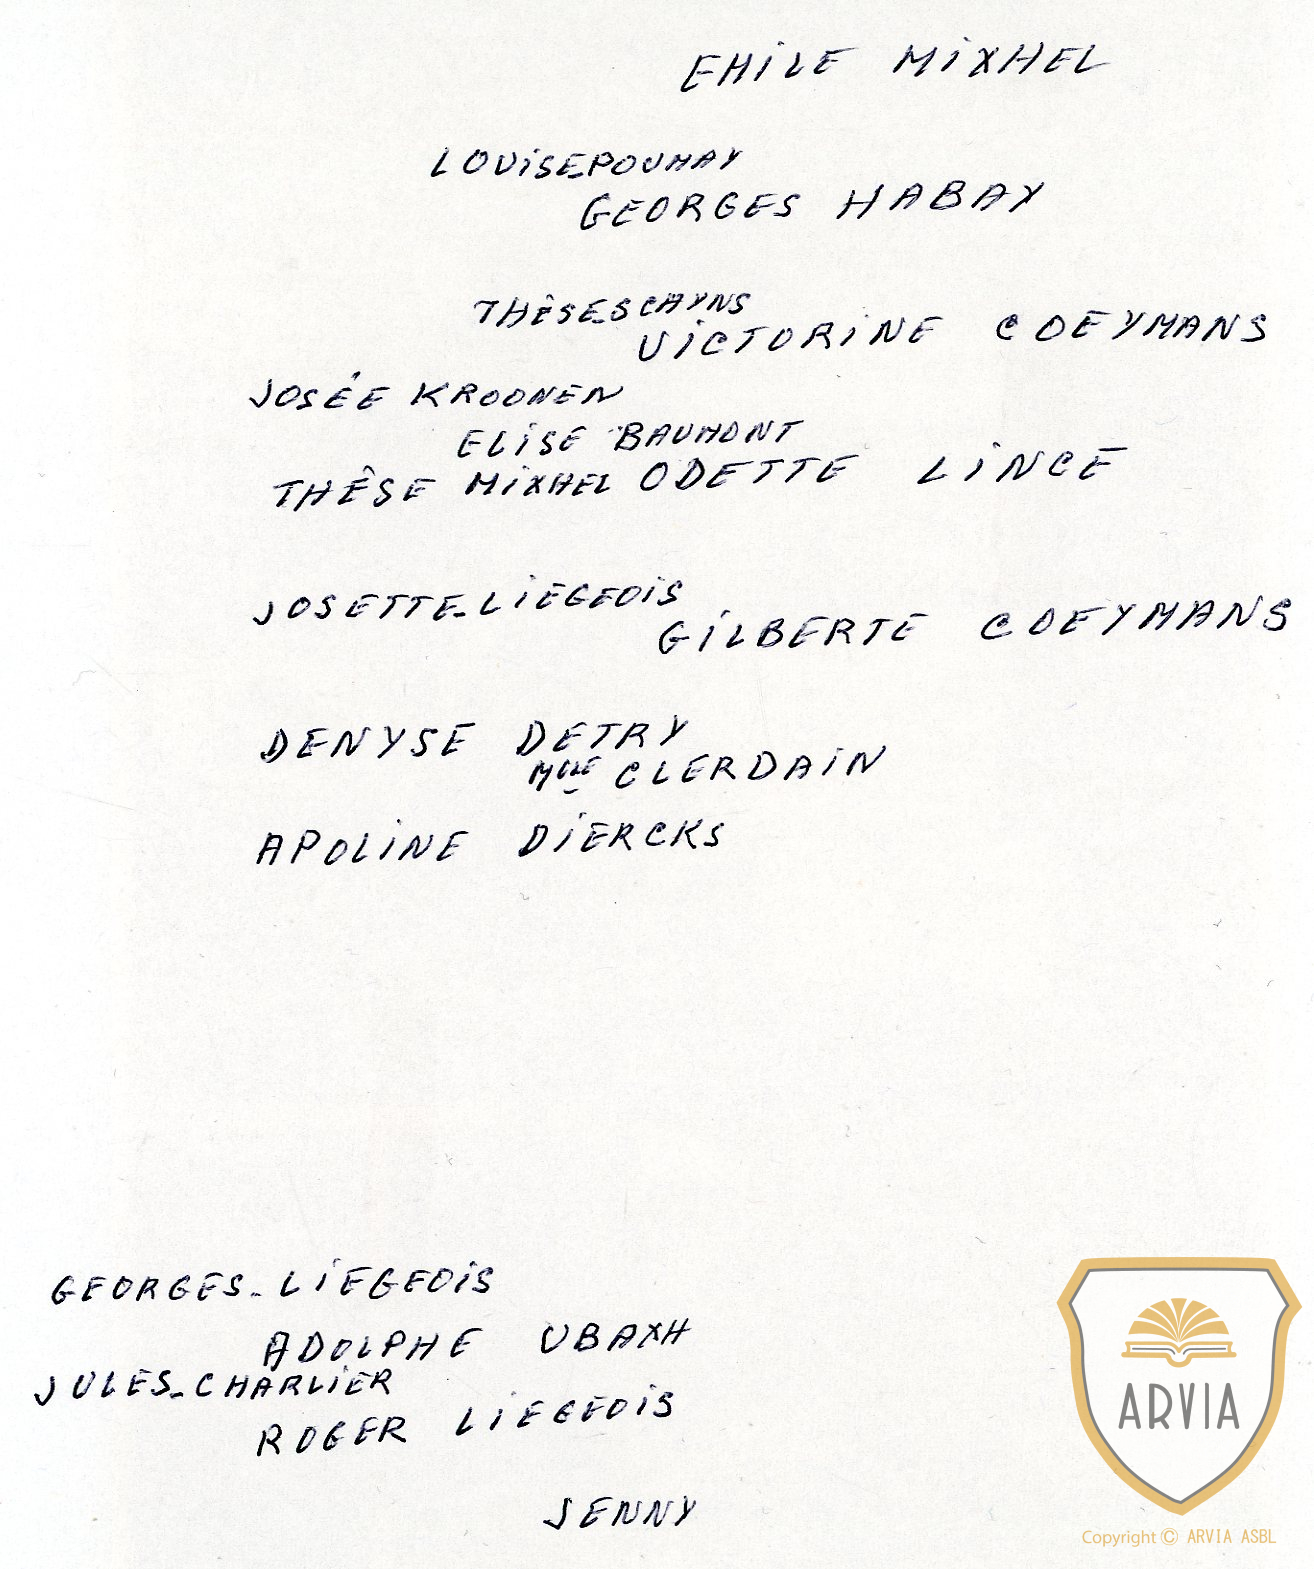 EMILE MIXHEL
LOUISE_POUMAY
GEORGES HABAY
THÊSE_SCAYNS
VICTORINE COEYMANS
JOSÉE KROONEN
ELISE BAUMONT
THÊSE MIXHEL ODETTE LINCE
JOSETTE_LIEGEOIS
GILBERTE COEYMANS
DENYSE DETRY
Mlle CLERDAIN
APOLINE DIERCKS
GEORGES_LIEGEOIS
ADOLPHE UBAXH
JULES_CHARLIER
ROGER LIEGEOIS
JENNY
ARVIA
Copyright © ARVIA ASBL